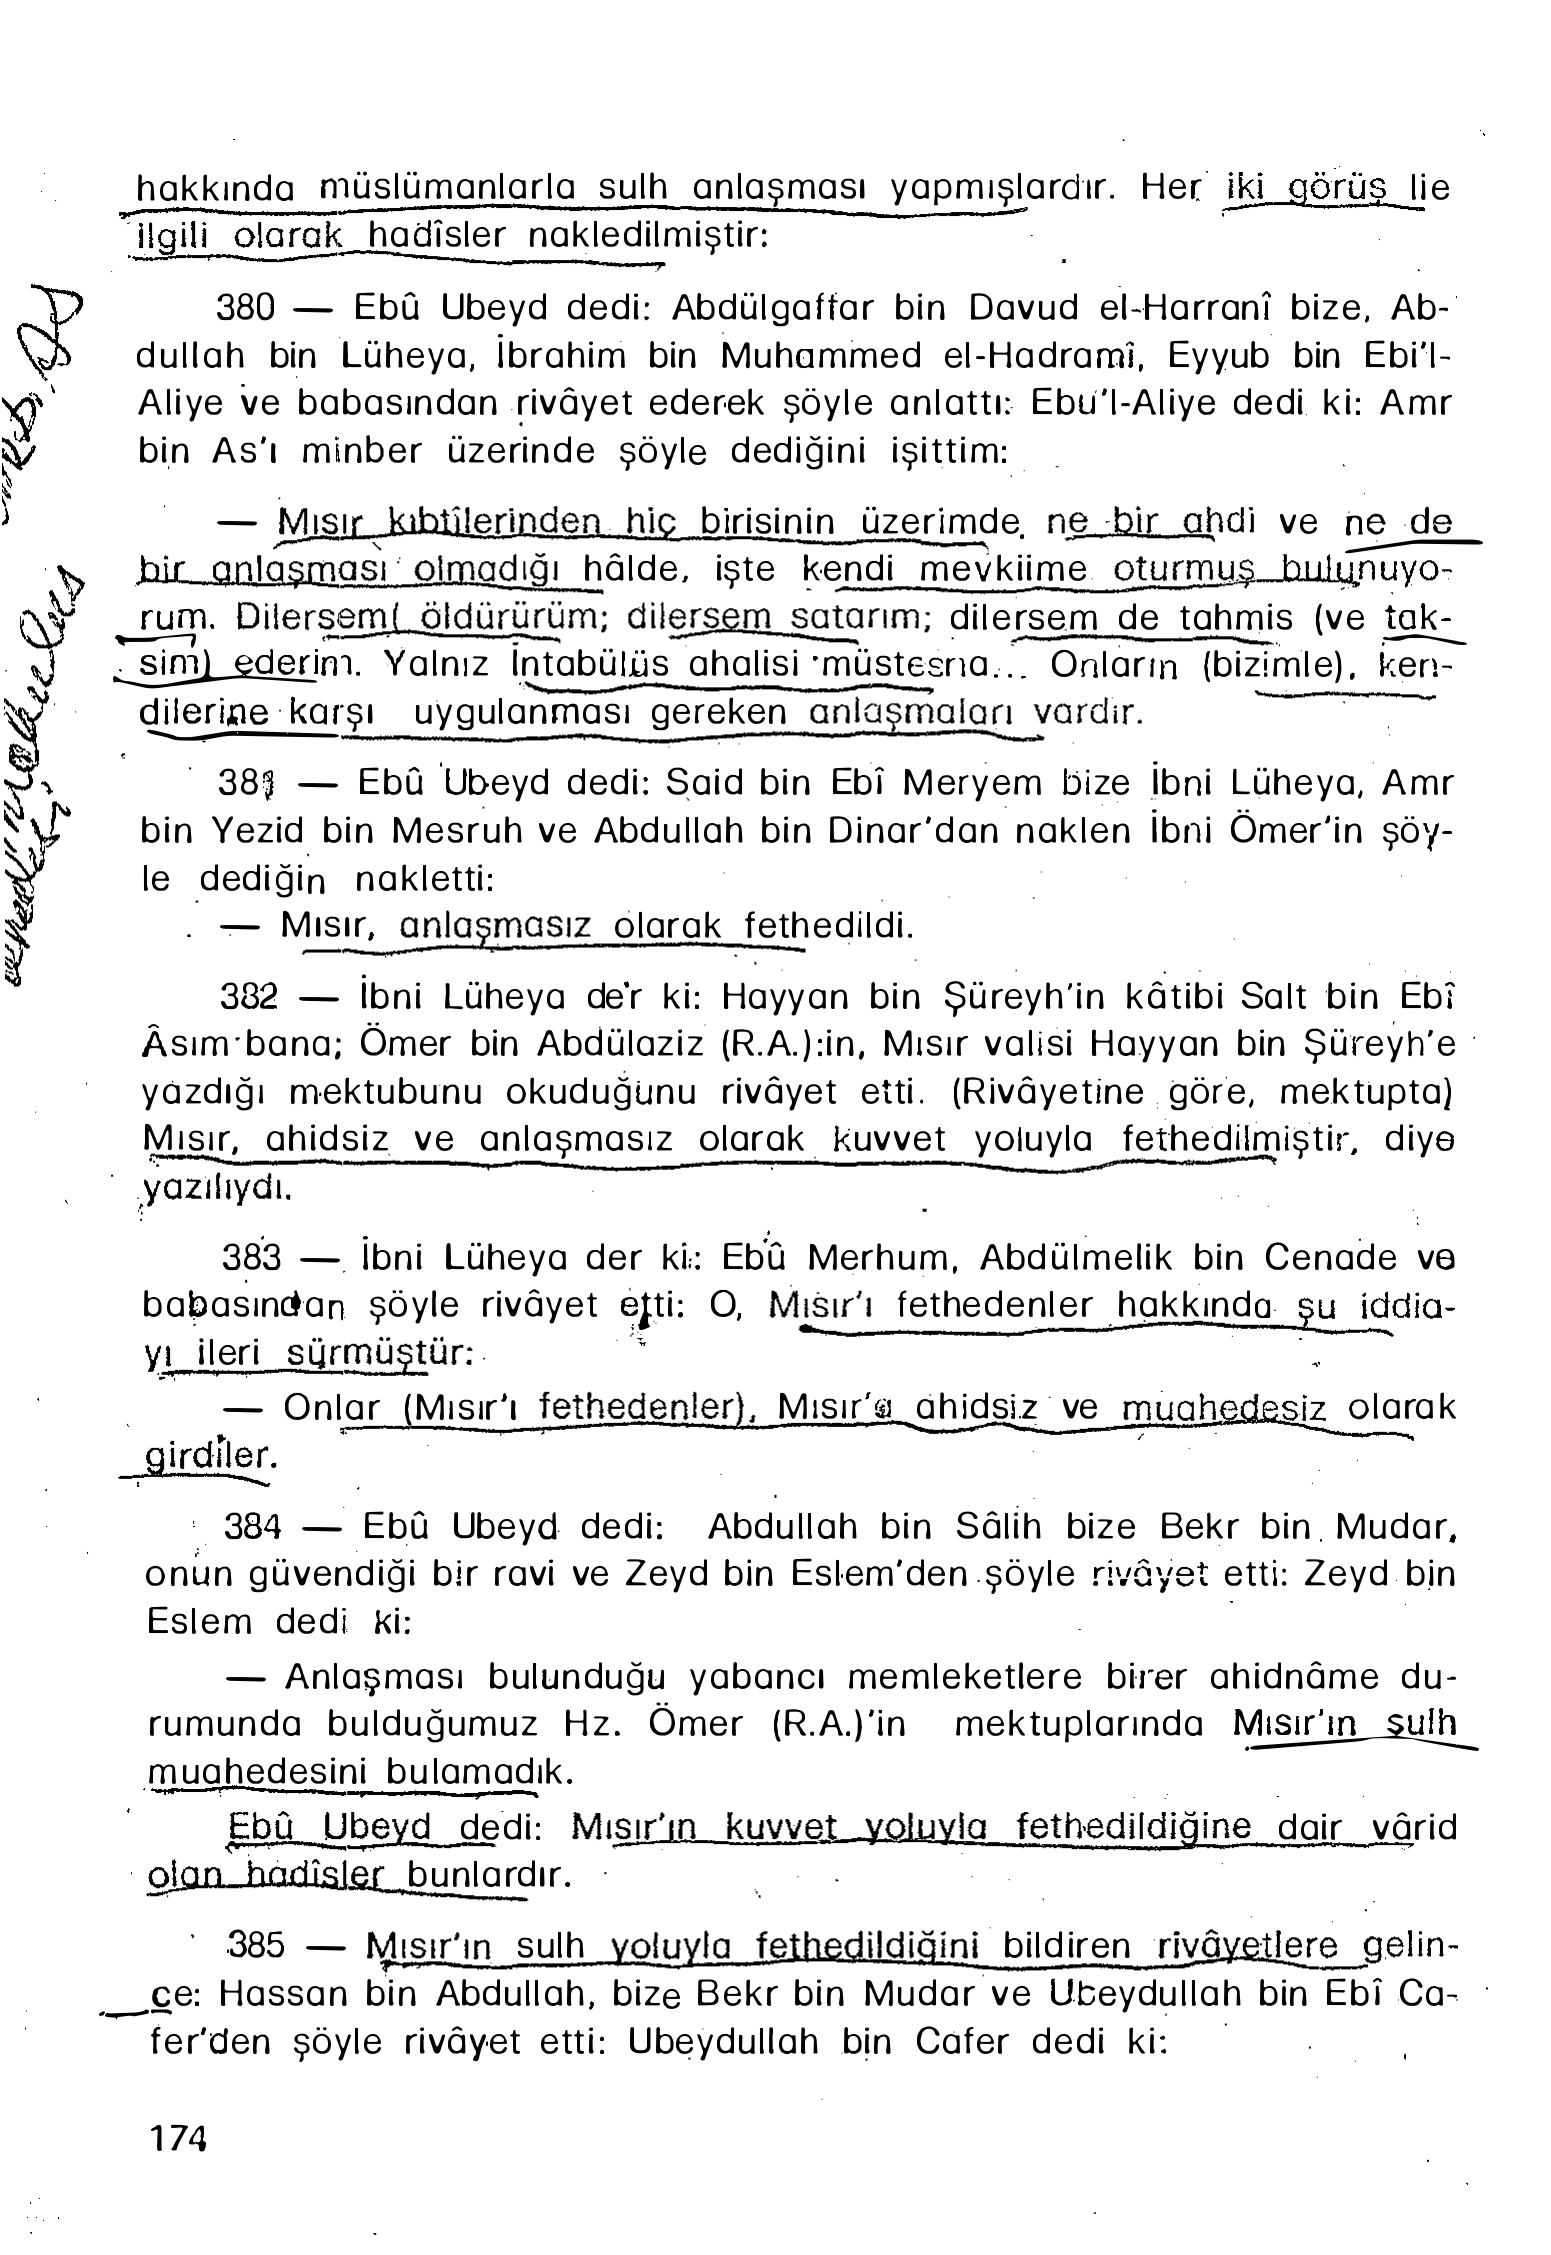 hakkında müslümanlarla sulh anlaşması yapmışlardır. Her iki görüş lie
ilgili olarak hadîsler nakledilmiştir:
380 — Ebû Ubeyd dedi: Abdülgaffar bin Davud el-Harranî bize, Ab-
dullah bin Lüheya, İbrahim bin Muhammed el-Hadramî, Eyyub bin Ebi'l-
Aliye ve babasından rivâyet ederek şöyle anlattı: Ebu'l-Aliye dedi ki: Amr
bin As'ı minber üzerinde şöyle dediğini işittim:
— Mısır kıbtîlerinden hiç birisinin üzerimde ne bir ahdi ve ne de
bir anlaşması olmadığı hâlde, işte kendi mevkiime oturmuş bulunuyo-
rum. Dilersem( öldürürüm; dilersem satarım; dilersem de tahmis (ve tak-
sim) ederim. Yalnız İntabülüs ahalisi müstesna... Onların (bizimle), ken-
dilerine karşı uygulanması gereken anlaşmaları vardır.
381 — Ebû Ubeyd dedi: Said bin Ebî Meryem bize İbni Lüheya, Amr
bin Yezid bin Mesruh ve Abdullah bin Dinar'dan naklen İbni Ömer'in şöy-
le dediğin nakletti:
— Mısır, anlaşmasız olarak fethedildi.
382 — İbni Lüheya de'r ki: Hayyan bin Şüreyh'in kâtibi Salt bin Ebî
Âsım bana; Ömer bin Abdülaziz (R.A.):in, Mısır valisi Hayyan bin Şüreyh'e
yazdığı mektubunu okuduğunu rivâyet etti. (Rivâyetine göre, mektupta)
Mısır, ahidsiz ve anlaşmasız olarak kuvvet yoluyla fethedilmiştir, diye
yazılıydı.
383 — İbni Lüheya der ki: Ebû Merhum, Abdülmelik bin Cenade ve
babasından şöyle rivâyet etti: O, Mısır'ı fethedenler hakkında şu iddia-
yı ileri sürmüştür:
— Onlar (Mısır'ı fethedenler), Mısır'a ahidsiz ve muahedesiz olarak
girdiler.
384 — Ebû Ubeyd dedi: Abdullah bin Sâlih bize Bekr bin Mudar,
onun güvendiği bir ravi ve Zeyd bin Eslem'den şöyle rivâyet etti: Zeyd bin
Eslem dedi ki:
— Anlaşması bulunduğu yabancı memleketlere birer ahidnâme du-
rumunda bulduğumuz Hz. Ömer (R.A.)'in mektuplarında Mısır'ın sulh
muahedesini bulamadık.
Ebû Ubeyd dedi: Mısır'ın kuvvet yoluyla fethedildiğine dair vârid
olan hadîsler bunlardır.
385 — Mısır'ın sulh yoluyla fethedildiğini bildiren rivâyetlere gelin-
ce: Hassan bin Abdullah, bize Bekr bin Mudar ve Ubeydullah bin Ebî Ca-
fer'den şöyle rivâyet etti: Ubeydullah bin Cafer dedi ki:
174